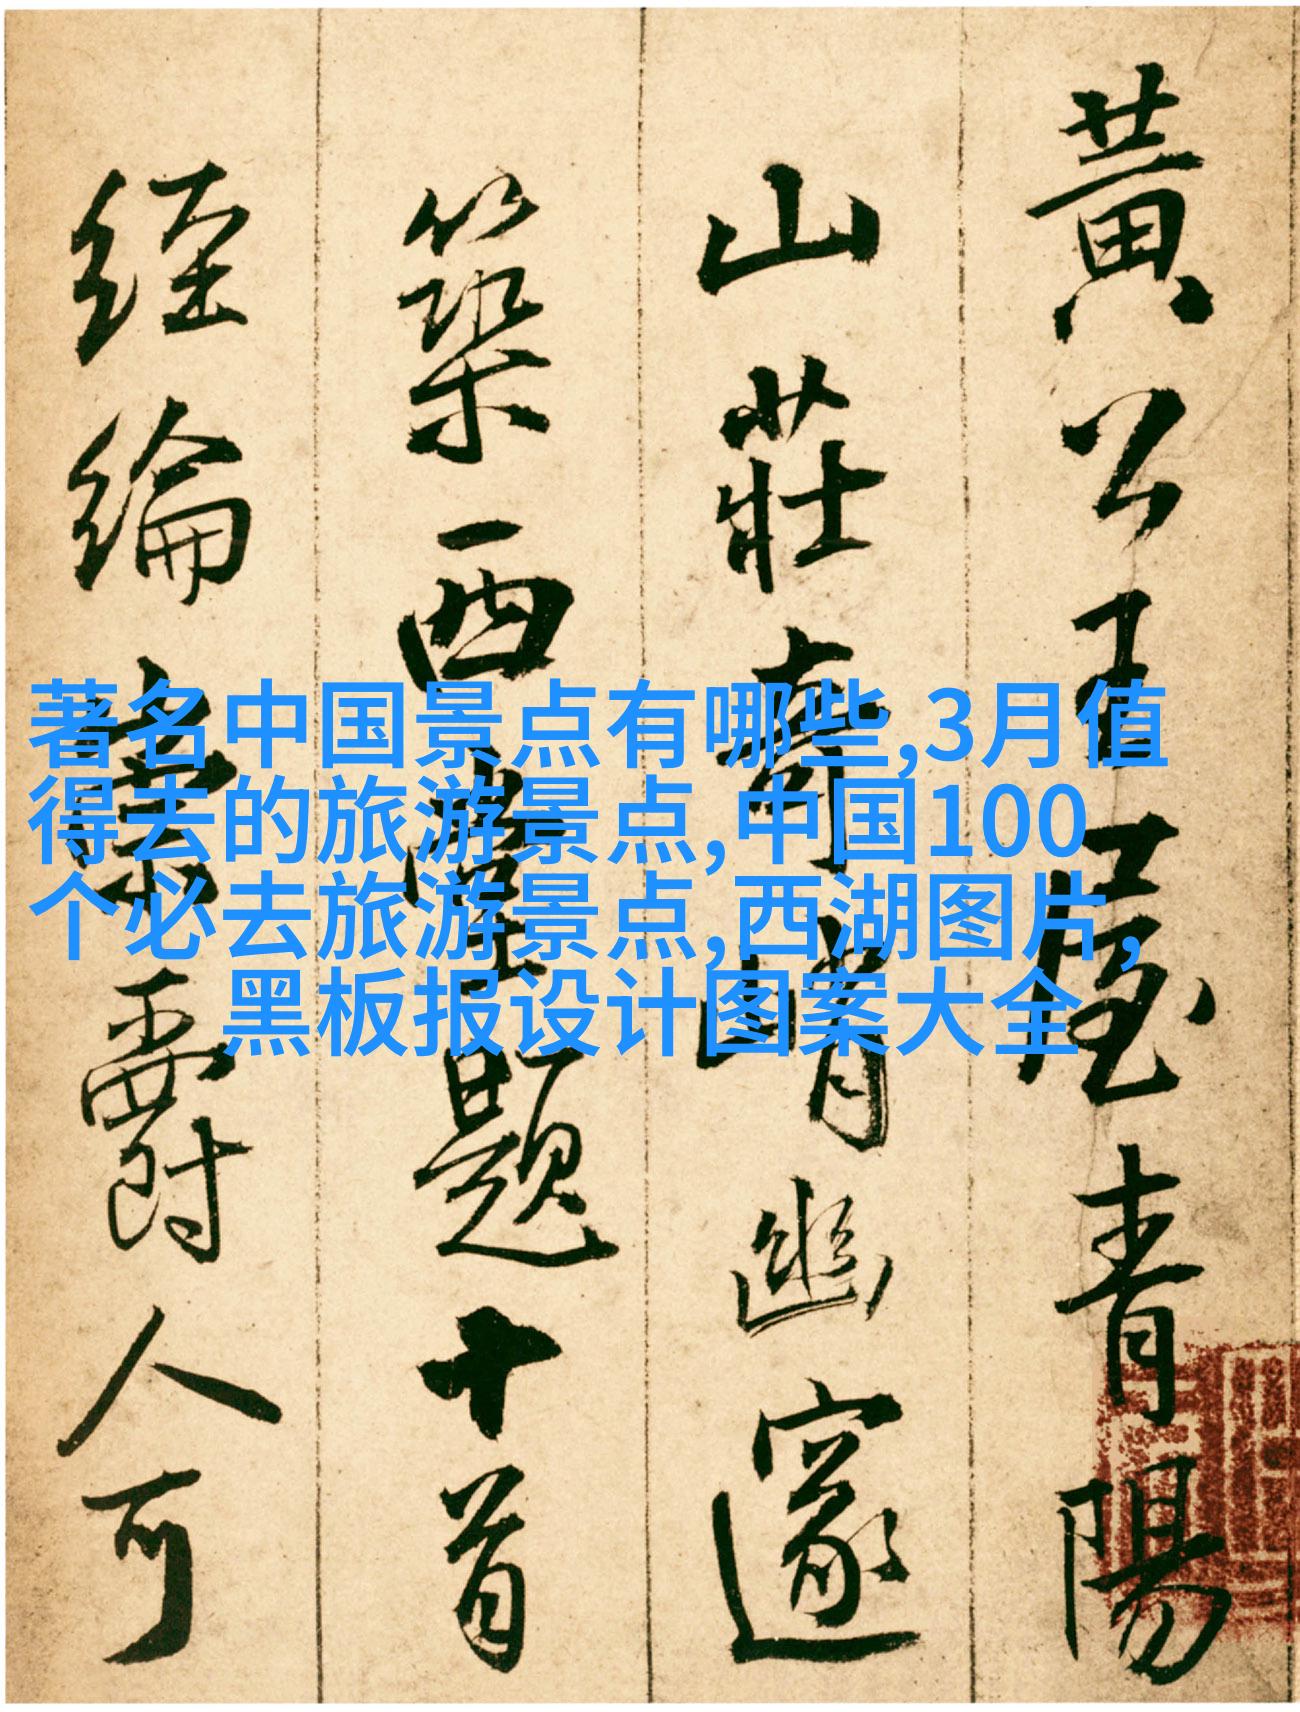 黃公王屋青陽
山莊奇峭幽邃
築西題十首
經綸爵人可
著名中国景点有哪些,3月值
得去的旅游景点,中国100
个必去旅游景点,西湖图片,
黑板报设计图案大全